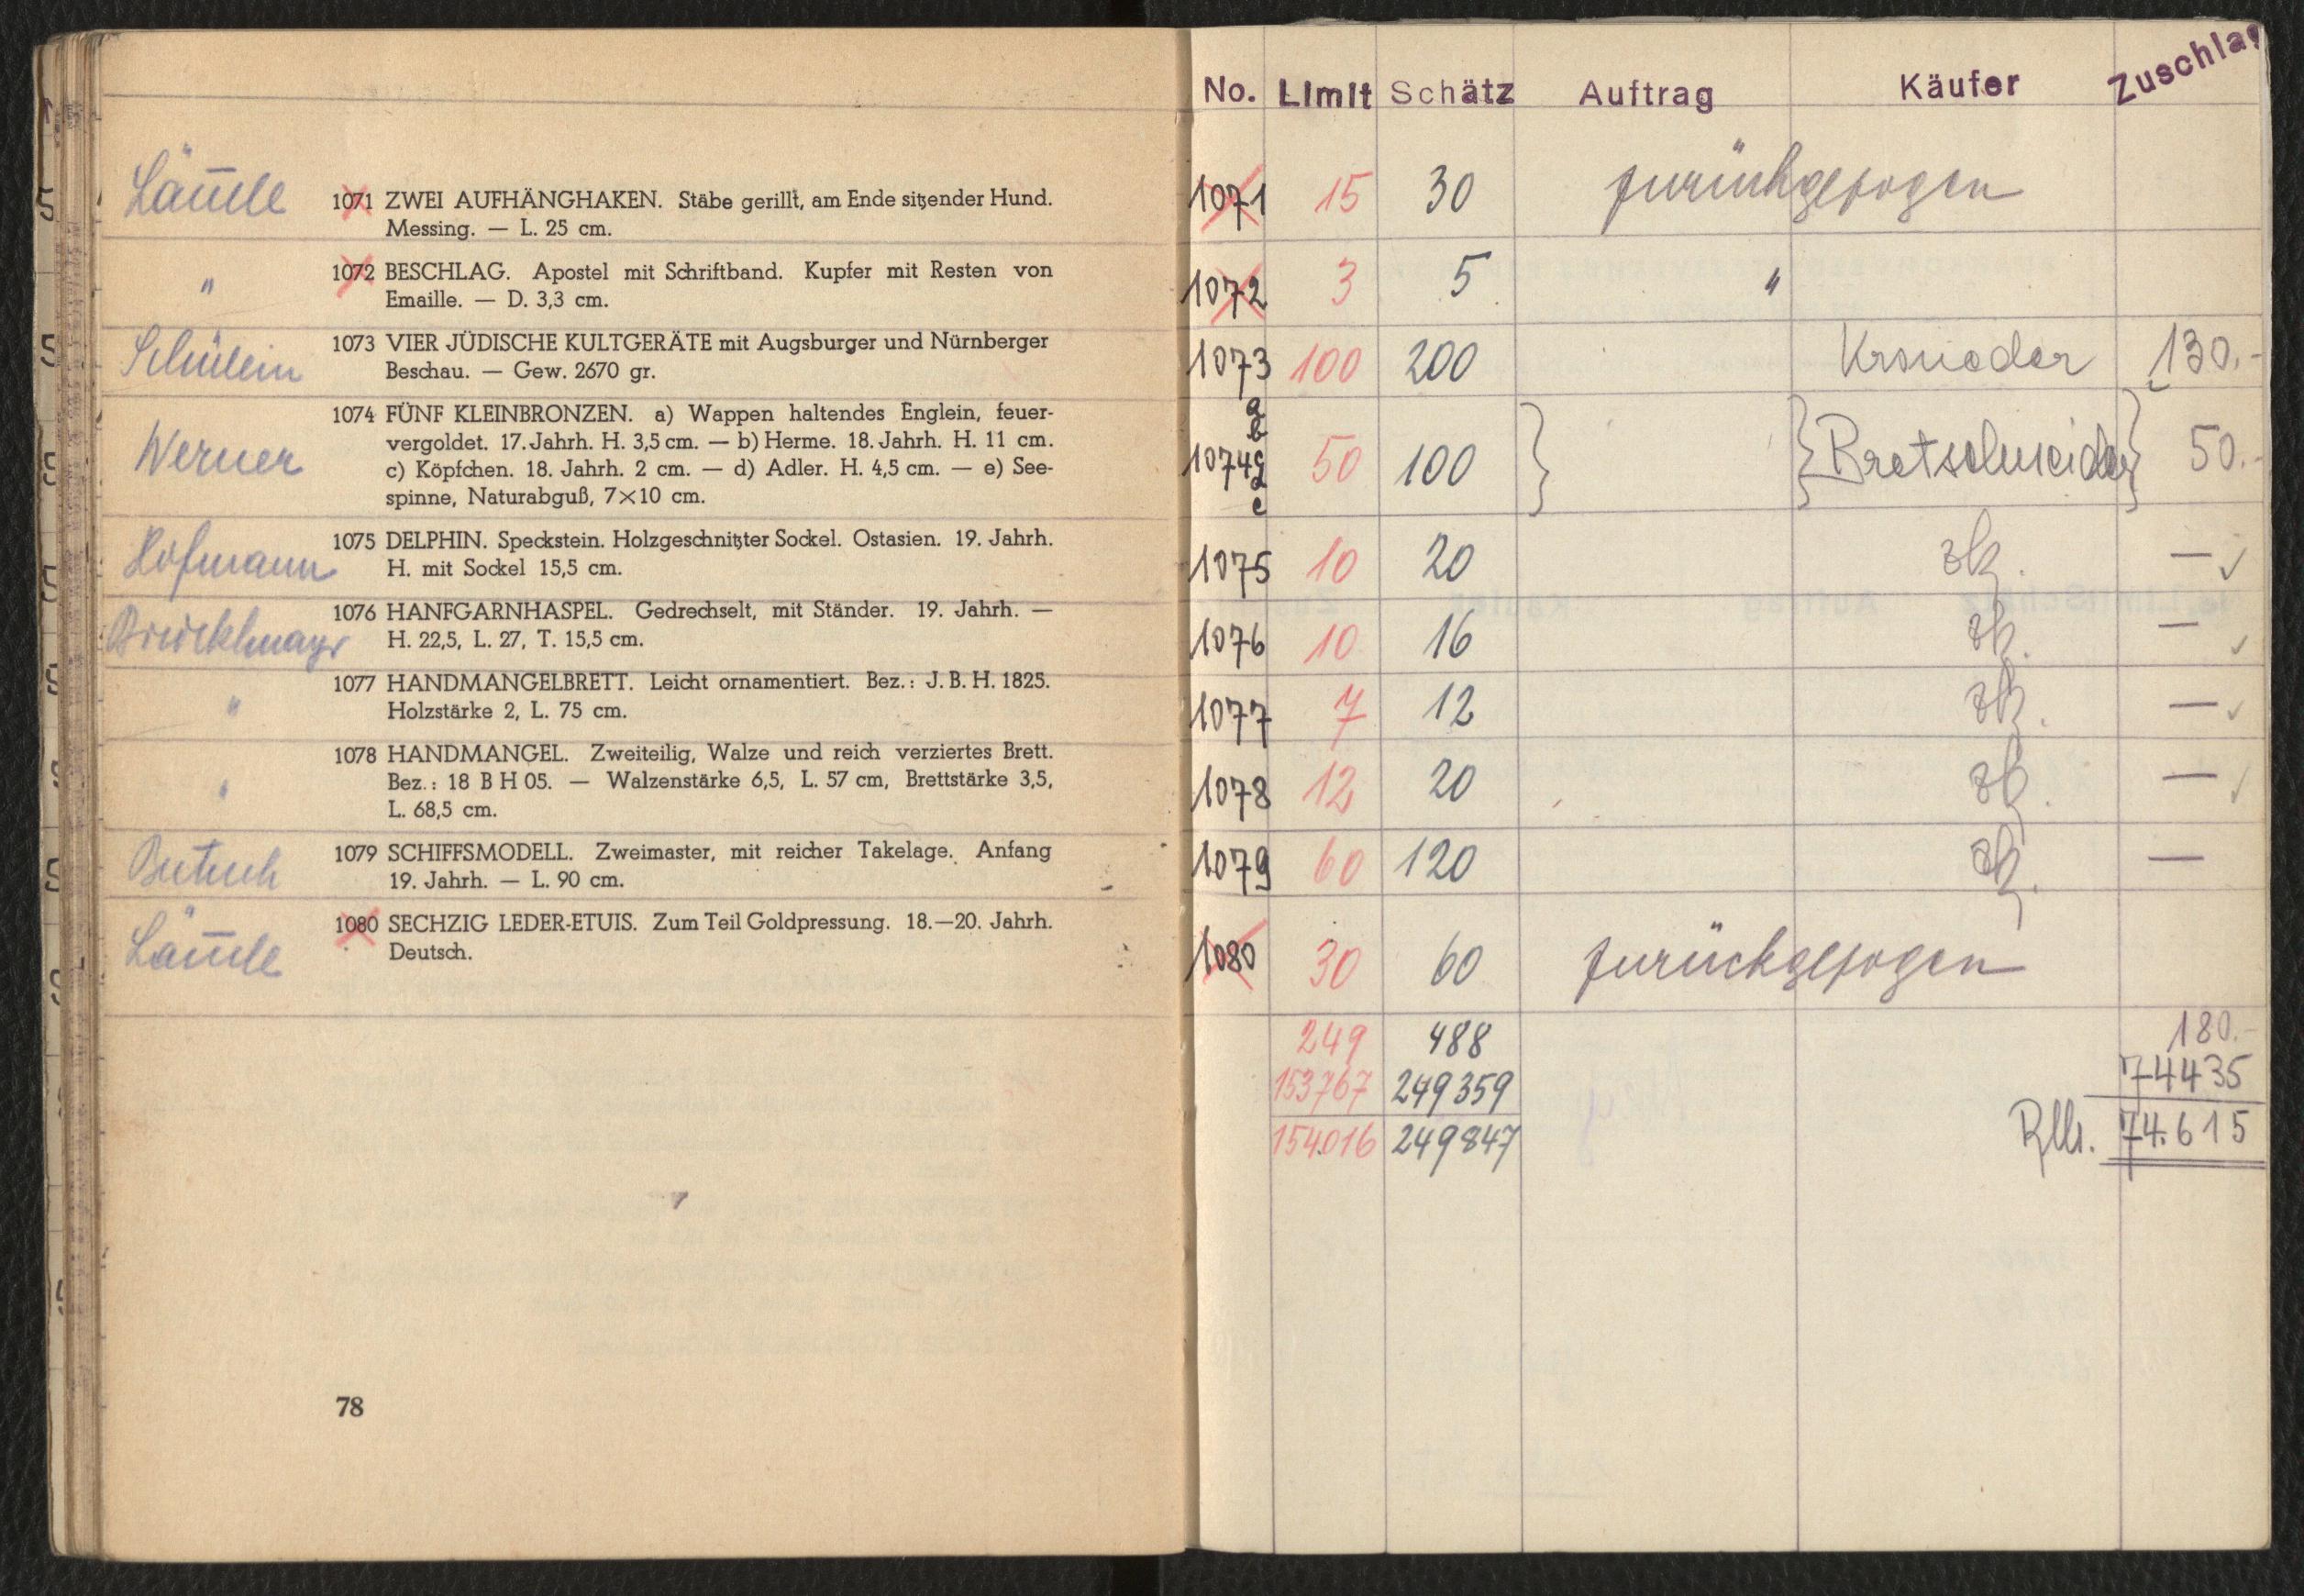 Lämle
1071 ZWEI AUFHÄNGHAKEN. Stäbe gerillt, am Ende sitzender Hund.
Messing. — L. 25 cm.
"
1072 BESCHLAG. Apostel mit Schriftband. Kupfer mit Resten von
Emaille. — D. 3,3 cm.
Schülein
1073 VIER JÜDISCHE KULTGERÄTE mit Augsburger und Nürnberger
Beschau. — Gew. 2670 gr.
Werner
1074 FÜNF KLEINBRONZEN. a) Wappen haltendes Englein, feuer-
vergoldet. 17. Jahrh. H. 3,5 cm. — b) Herme. 18. Jahrh. H. 11 cm.
c) Köpfchen. 18. Jahrh. 2 cm. — d) Adler. H. 4,5 cm. — e) See-
spinne, Naturabguß, 7×10 cm.
Hofmann
1075 DELPHIN. Speckstein. Holzgeschnitzter Sockel. Ostasien. 19. Jahrh.
H. mit Sockel 15,5 cm.
Brücklmayr
1076 HANFGARNHASPEL. Gedrechselt, mit Ständer. 19. Jahrh. —
H. 22,5, L. 27, T. 15,5 cm.
"
1077 HANDMANGELBRETT. Leicht ornamentiert. Bez.: J. B. H. 1825.
Holzstärke 2, L. 75 cm.
"
1078 HANDMANGEL. Zweiteilig, Walze und reich verziertes Brett.
Bez.: 18 B H 05. — Walzenstärke 6,5, L. 57 cm, Brettstärke 3,5,
L. 68,5 cm.
Butsch
1079 SCHIFFSMODELL. Zweimaster, mit reicher Takelage. Anfang
19. Jahrh. — L. 90 cm.
Lämle
1080 SECHZIG LEDER-ETUIS. Zum Teil Goldpressung. 18.—20. Jahrh.
Deutsch.
78
No. Limit Schätz Auftrag Käufer Zuschlag
1071 15 30 zurückgezogen
1072 3 5 "
1073 100 200 Kroneder 130.-
1074 a b c d e 50 100 Bretschneider 50.-
1075 10 20 zk. —
1076 10 16 zk. —
1077 7 12 zk. —
1078 12 20 zk. —
1079 60 120 zk. —
1080 30 60 zurückgezogen
249 488 180.-
153767 249359 74435
154.016 249847 74.615